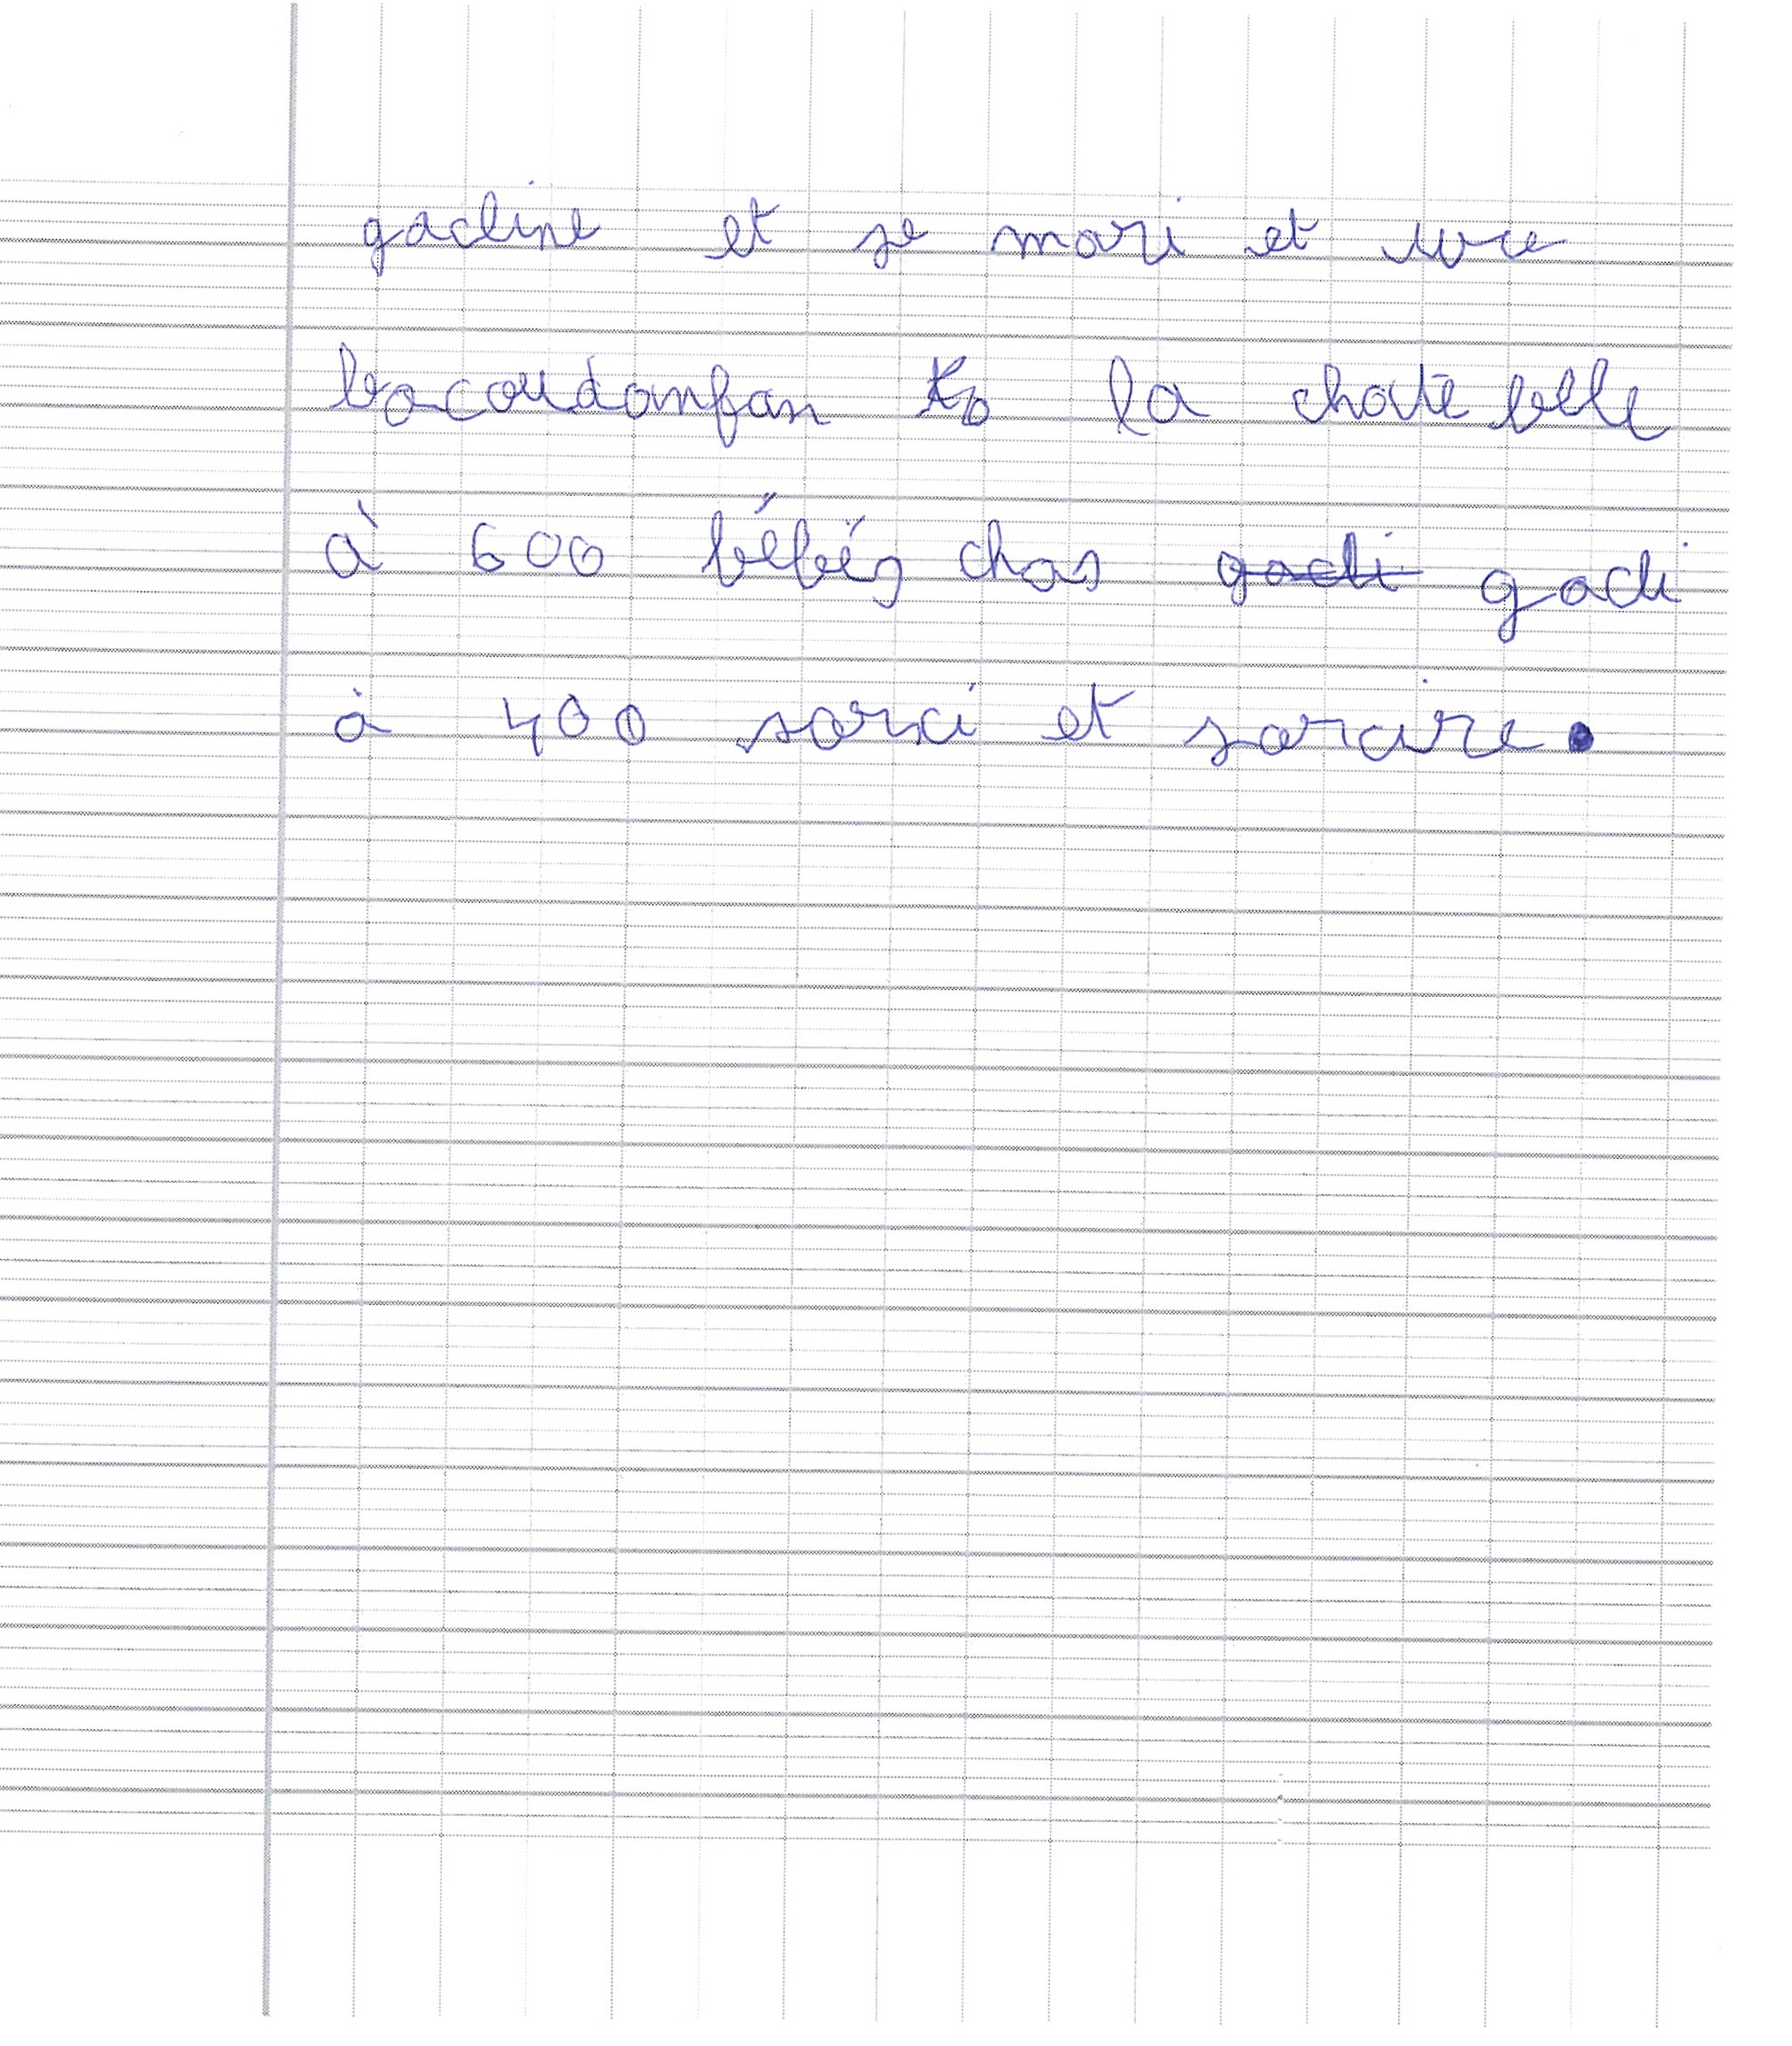 gacline et se mari et urce
bocoudanfan to la chate belle
à 600 bébés chas gacli gacli
à 400 sorci et sorcire.